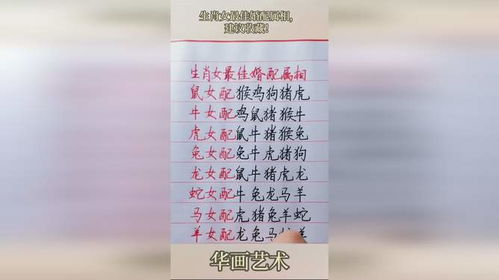 生肖女最佳婚配属相,
建议收藏!
生肖女最佳婚配属相
鼠女配猴鸡狗猪虎
牛女配鸡鼠猪猴牛
虎女配鼠牛猪猴兔
兔女配兔牛虎猪狗
龙女配鼠牛猪虎龙
蛇女配牛兔龙马羊
马女配虎猪兔羊蛇
羊女配龙兔马 羊
华画艺术